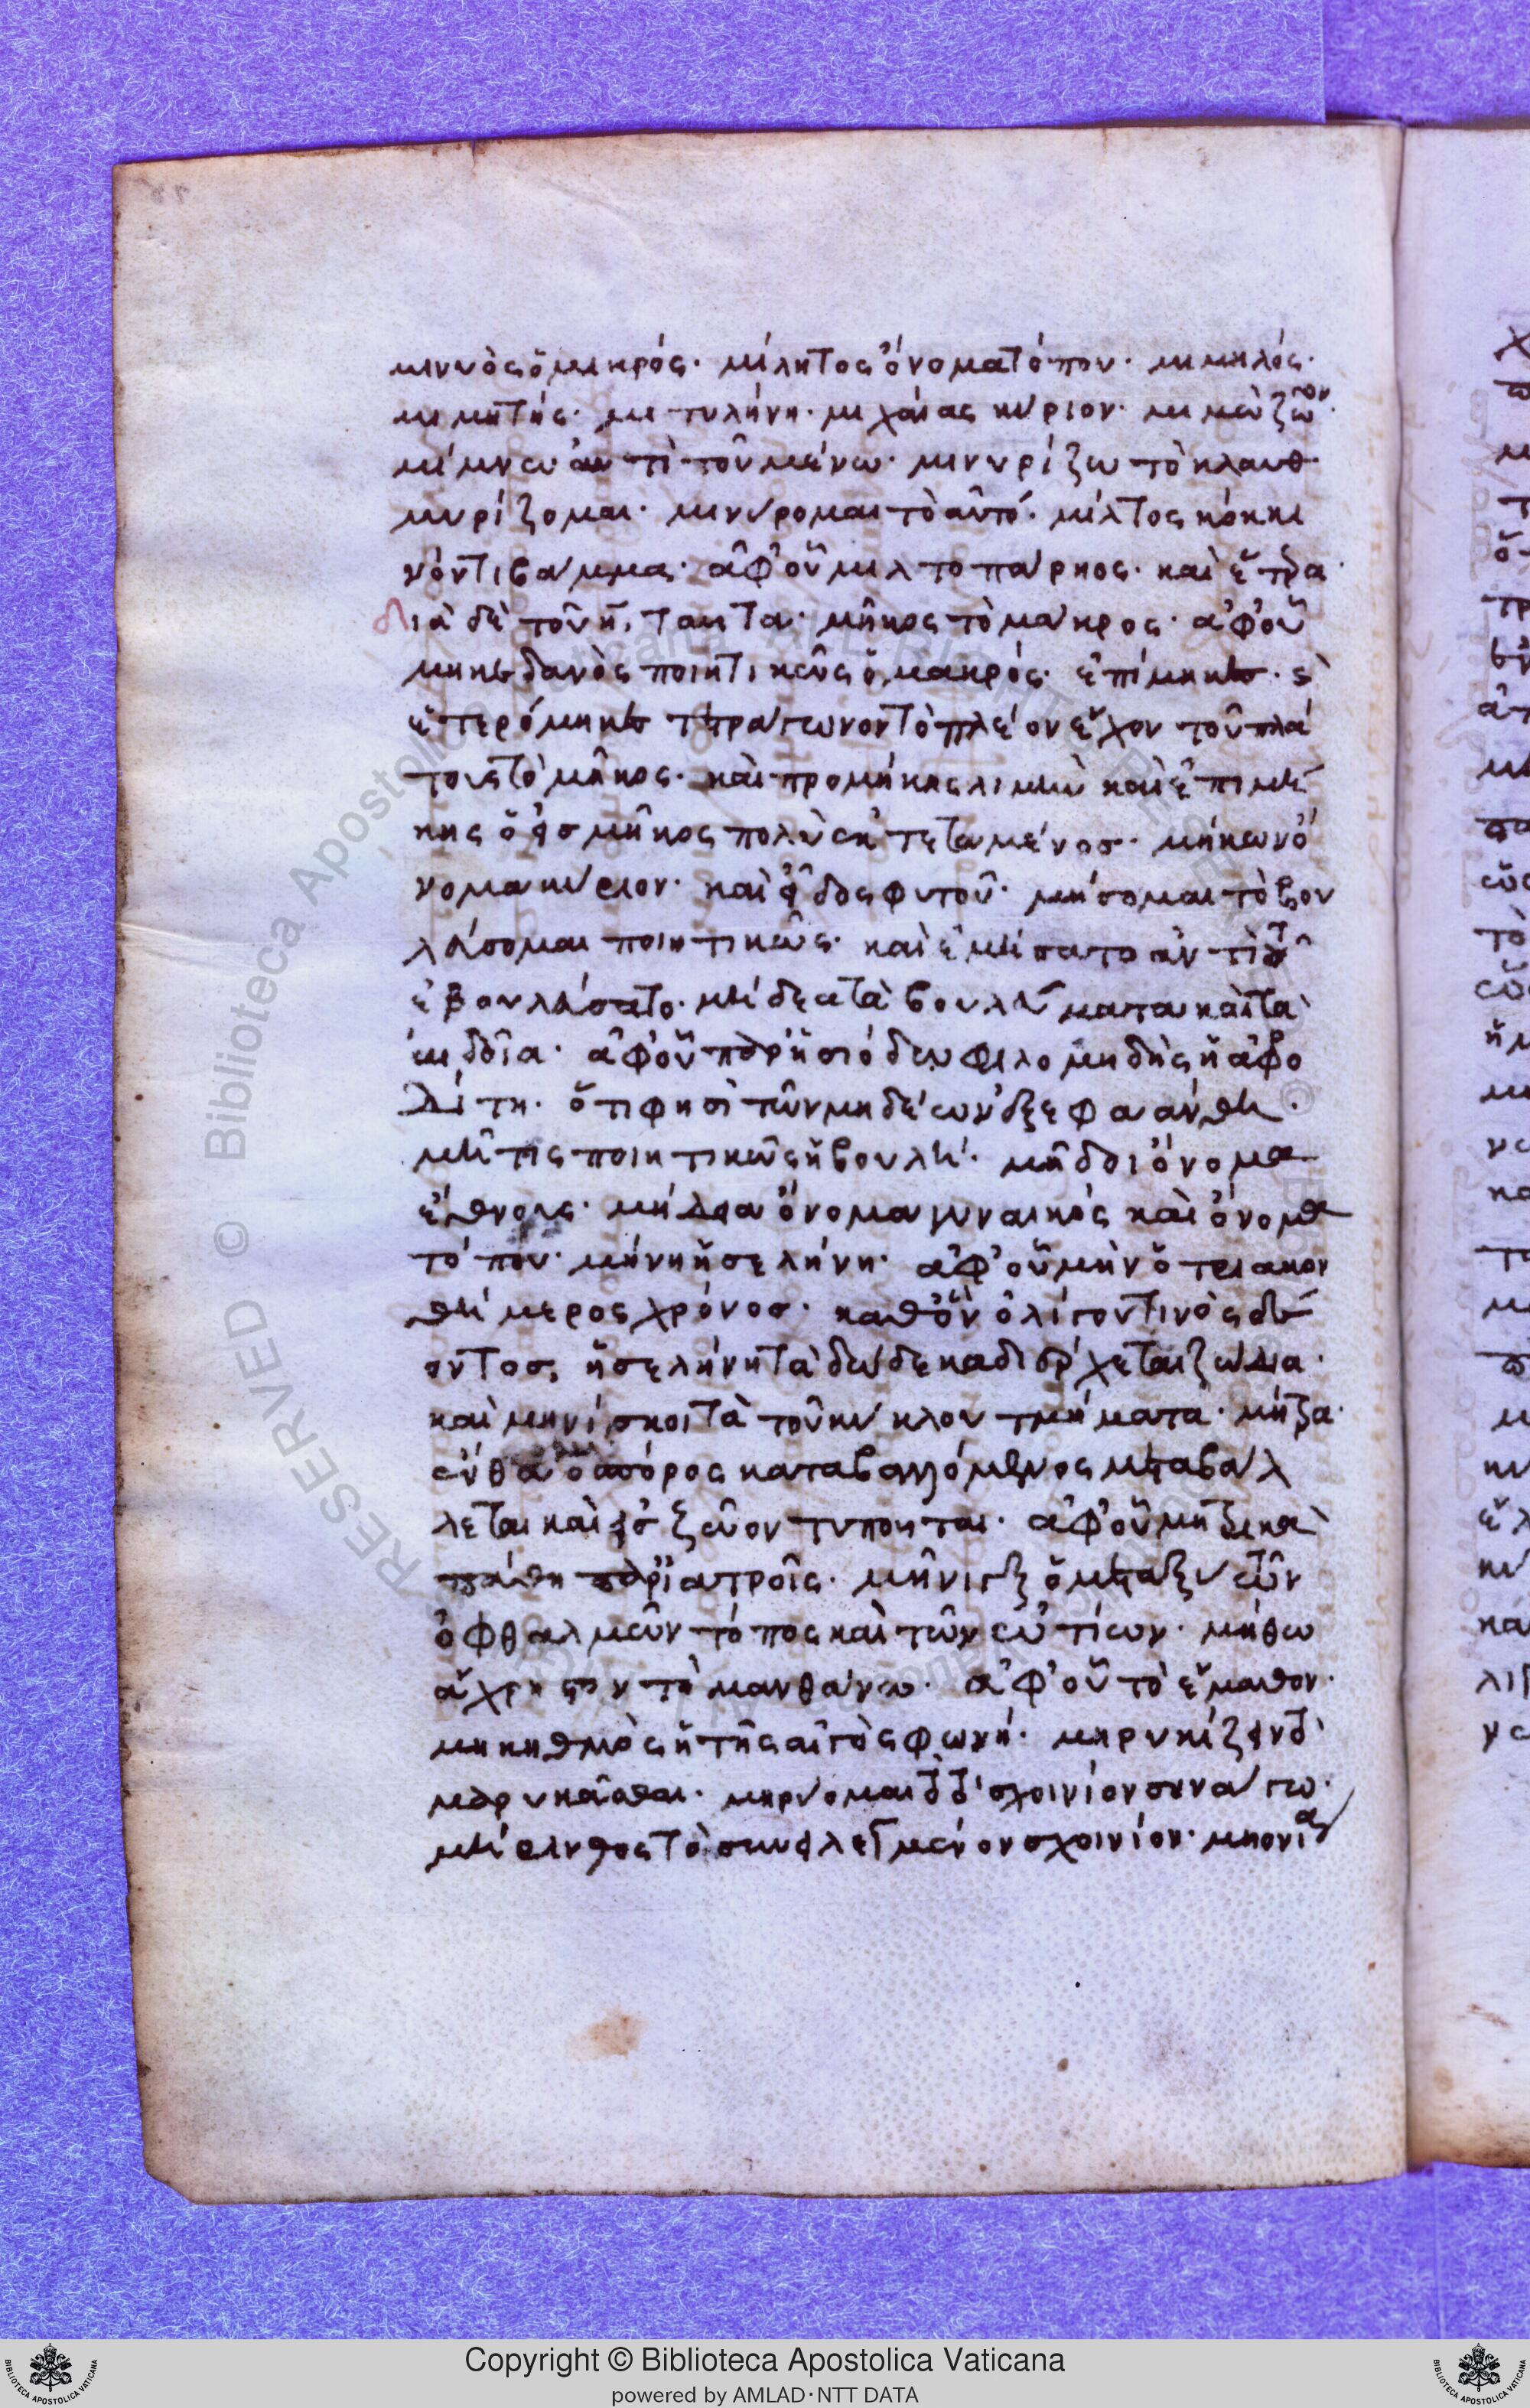 μιννὸς ὁ μικρός· μίλητος ὄνομα τόπου· μιμηλός·
μιμητής· μιτυλήνη· μιχαίας κύριον· μιμὼ ζῶον·
μίμνω ἀντὶ τοῦ μένω· μινυρίζω τὸ κλαυθ
μυρίζομαι· μινύρομαι τὸ αὐτό· μίλτος κόκκι
νόν τι βάμμα· ἀφ' οὗ μιλτοπάρηος· καὶ ἕτερα·
Διὰ δὲ τοῦ η, ταῦτα· μῆκος τὸ μάκρος· ἀφ' οὗ
μηκεδανὸς ποιητικῶς ὁ μακρός· ἐπίμηκες· κὶ
ἑτερόμηκες τετράγωνον τὸ πλεῖον ἔχον τοῦ πλά
τους τὸ μῆκος· καὶ προμήκης λιμὴν καὶ ἐπιμή
κης ὁ εἰς μῆκος πολὺ ἐκτεταμένος· μήκων ὄ
νομα κύριον· καὶ εἶδος φυτοῦ· μήσομαι τὸ βου
λεύσομαι ποιητικῶς· καὶ ἐμήσατο ἀντὶ τοῦ
ἐβουλεύσατο· μήδεα τὰ βουλεύματα καὶ τὰ
αἰδοῖα· ἀφ' οὗ παρ' ἡσιόδω φιλομηδὴς ἡ ἀφρο
δίτη· ὅτι φησὶ τῶν μηδέων ἐξεφαάνθη·
μῆτις ποιητικῶς ἡ βουλή· μῆδοι ὄνομα
ἔθνους· μήδεια ὄνομα γυναικός καὶ ὄνομα
τόπου· μήνη ἡ σελήνη· ἀφ' οὗ μὴν ὁ τριακον
θήμερος χρόνος· καθ' ὃν ὀλίγου τινὸς δέ
οντος, ἡ σελήνη τὰ δώδεκα διέρχεται ζώδια·
καὶ μηνίσκοι τὰ τοῦ κύκλου τμήματα· μήτρα·
ἔνθα ὁ σπόρος καταβαλλόμενος μεταβάλ
λεται καὶ εἰς ζῶον τυποῦται· ἀφ' οὗ μητρικὰ
πάθη παρ' ἰατροῖς· μῆνιγξ ὁ μεταξὺ τῶν
ὀφθαλμῶν τόπος καὶ τῶν ὠτίων· μήθω
ἄχρηστον τὸ μανθάνω· ἀφ' οὗ τὸ ἔμαθον·
μηκηθμὸς ἡ τῆς αἰγὸς φωνή· μηρυκίζειν τὸ
μαρυκᾶσθαι· μηρύομαι τὸ σχοινίον συνάγω·
μήρινθος τὸ συνειλεγμένον σχοινίον·